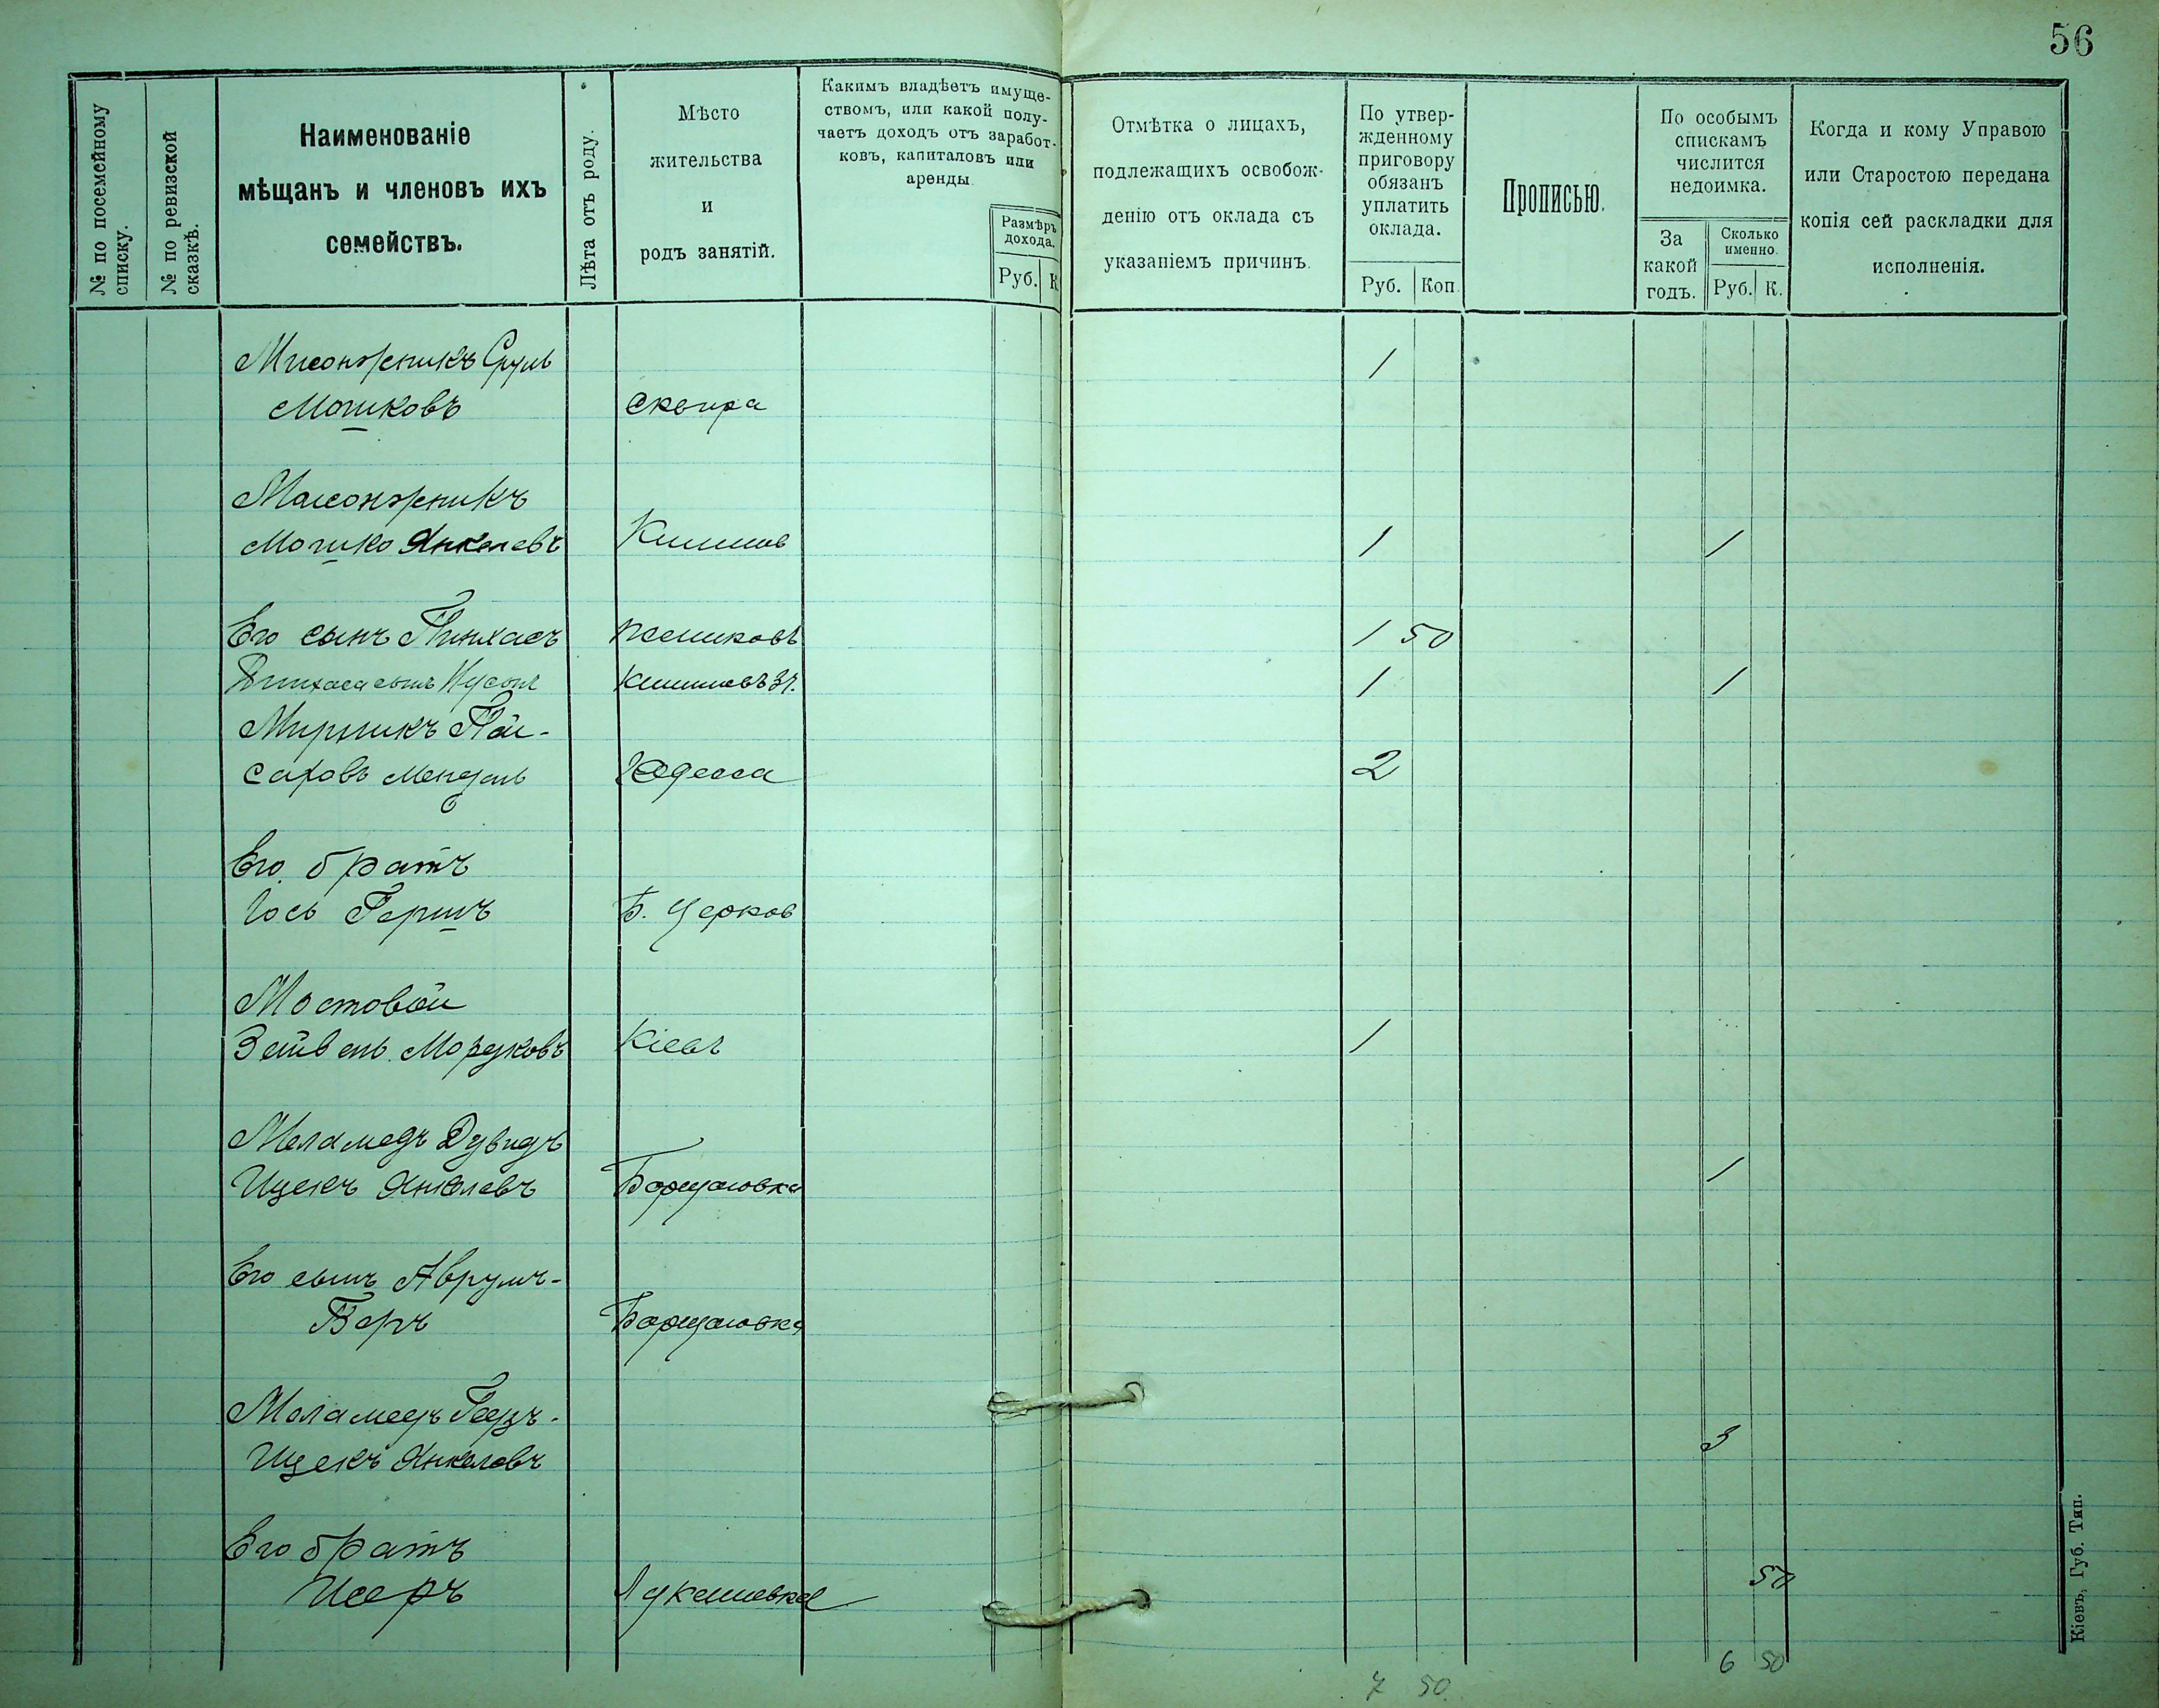 56
№ по посемейному
списку.
№ по ревизской
сказкѣ.
Наименованіе
мѣщанъ и членовъ ихъ
семействъ.
Лѣта отъ роду.
Мѣсто
жительства
и
родъ занятій.
Какимъ владѣетъ имуще-
ствомъ, или какой полу-
чаетъ доходъ отъ заработ-
ковъ, капиталовъ или
аренды.
Размѣръ
дохода.
Руб. К
Отмѣтка о лицахъ,
подлежащихъ освобож-
денію отъ оклада съ
указаніемъ причинъ.
По утвер-
жденному
приговору
обязанъ
уплатить
оклада.
Руб. Коп.
Прописью.
По особымъ
спискамъ
числится
недоимка.
За
какой
годъ.
Сколько
именно.
Руб. К.
Когда и кому Управою
или Старостою передана
копія сей раскладки для
исполненія.
Срулъ 1
Мошковъ Сквира
Мошко Янкелевъ 1 1
Его сынъ Пинхасъ 1 50
Пинхаса сынъ Нусонъ 1 1
Мирникъ Пей-
саховъ Мендель Одесса 2
Его братъ
Іось Гершъ Б. Церков
Мостовой
Зейвель Мордковъ Кіевъ 1
Меламедъ Дувидъ
Ицекъ Янкелевъ Борщаговка 1
Его сынъ Аврумъ-
Беръ Борщаговка
Меламедъ
Ицекъ Янкелевъ 3
Его братъ
Исеръ Лукашевка 50
7 50. 6 50
Кіевъ, Губ. Тип.